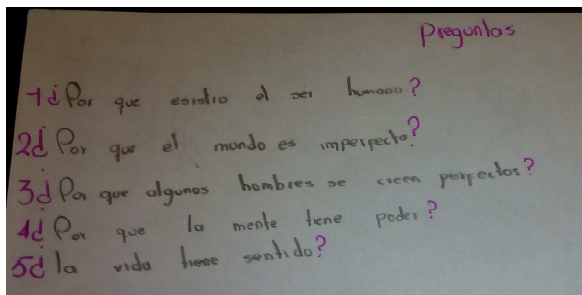 Preguntas
1¿Por que existio el ser humano?
2¿Por que el mundo es imperfecto?
3¿Por que algunos hombres se creen perfectos?
4¿Por que la mente tiene poder?
5¿la vida tiene sentido?